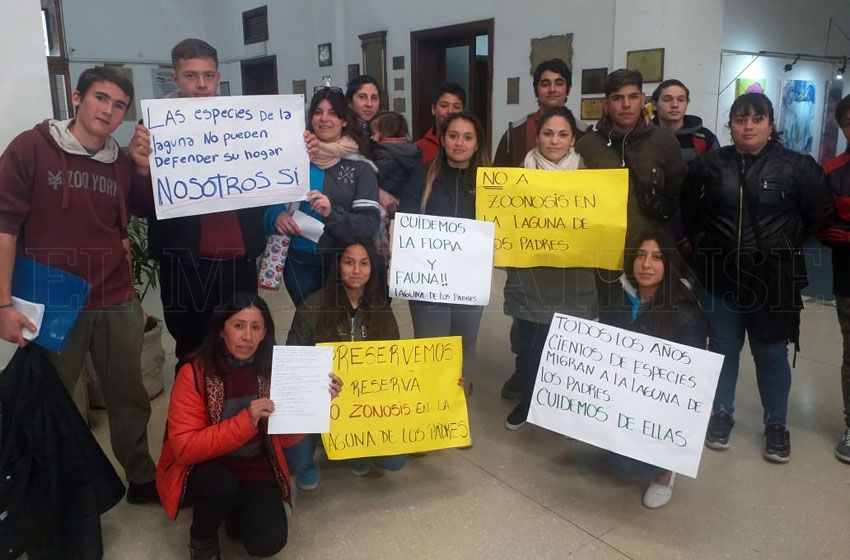 Las especies de la
laguna NO pueden
Defender su hogar
NOSOTROS SÍ
ZOO YORK
CUIDEMOS
LA FLORA
Y
FAUNA!!
LAGUNA DE LOS PADRES
NO A
ZOONOSIS EN
LA LAGUNA DE
LOS PADRES
PRESERVEMOS
RESERVA
NO ZONOSIS EN LA
LAGUNA DE LOS PADRES
TODOS LOS AÑOS
CIENTOS DE ESPECIES
MIGRAN A LA LAGUNA DE
LOS PADRES
CUIDEMOS DE ELLAS
EL MARPLATENSE